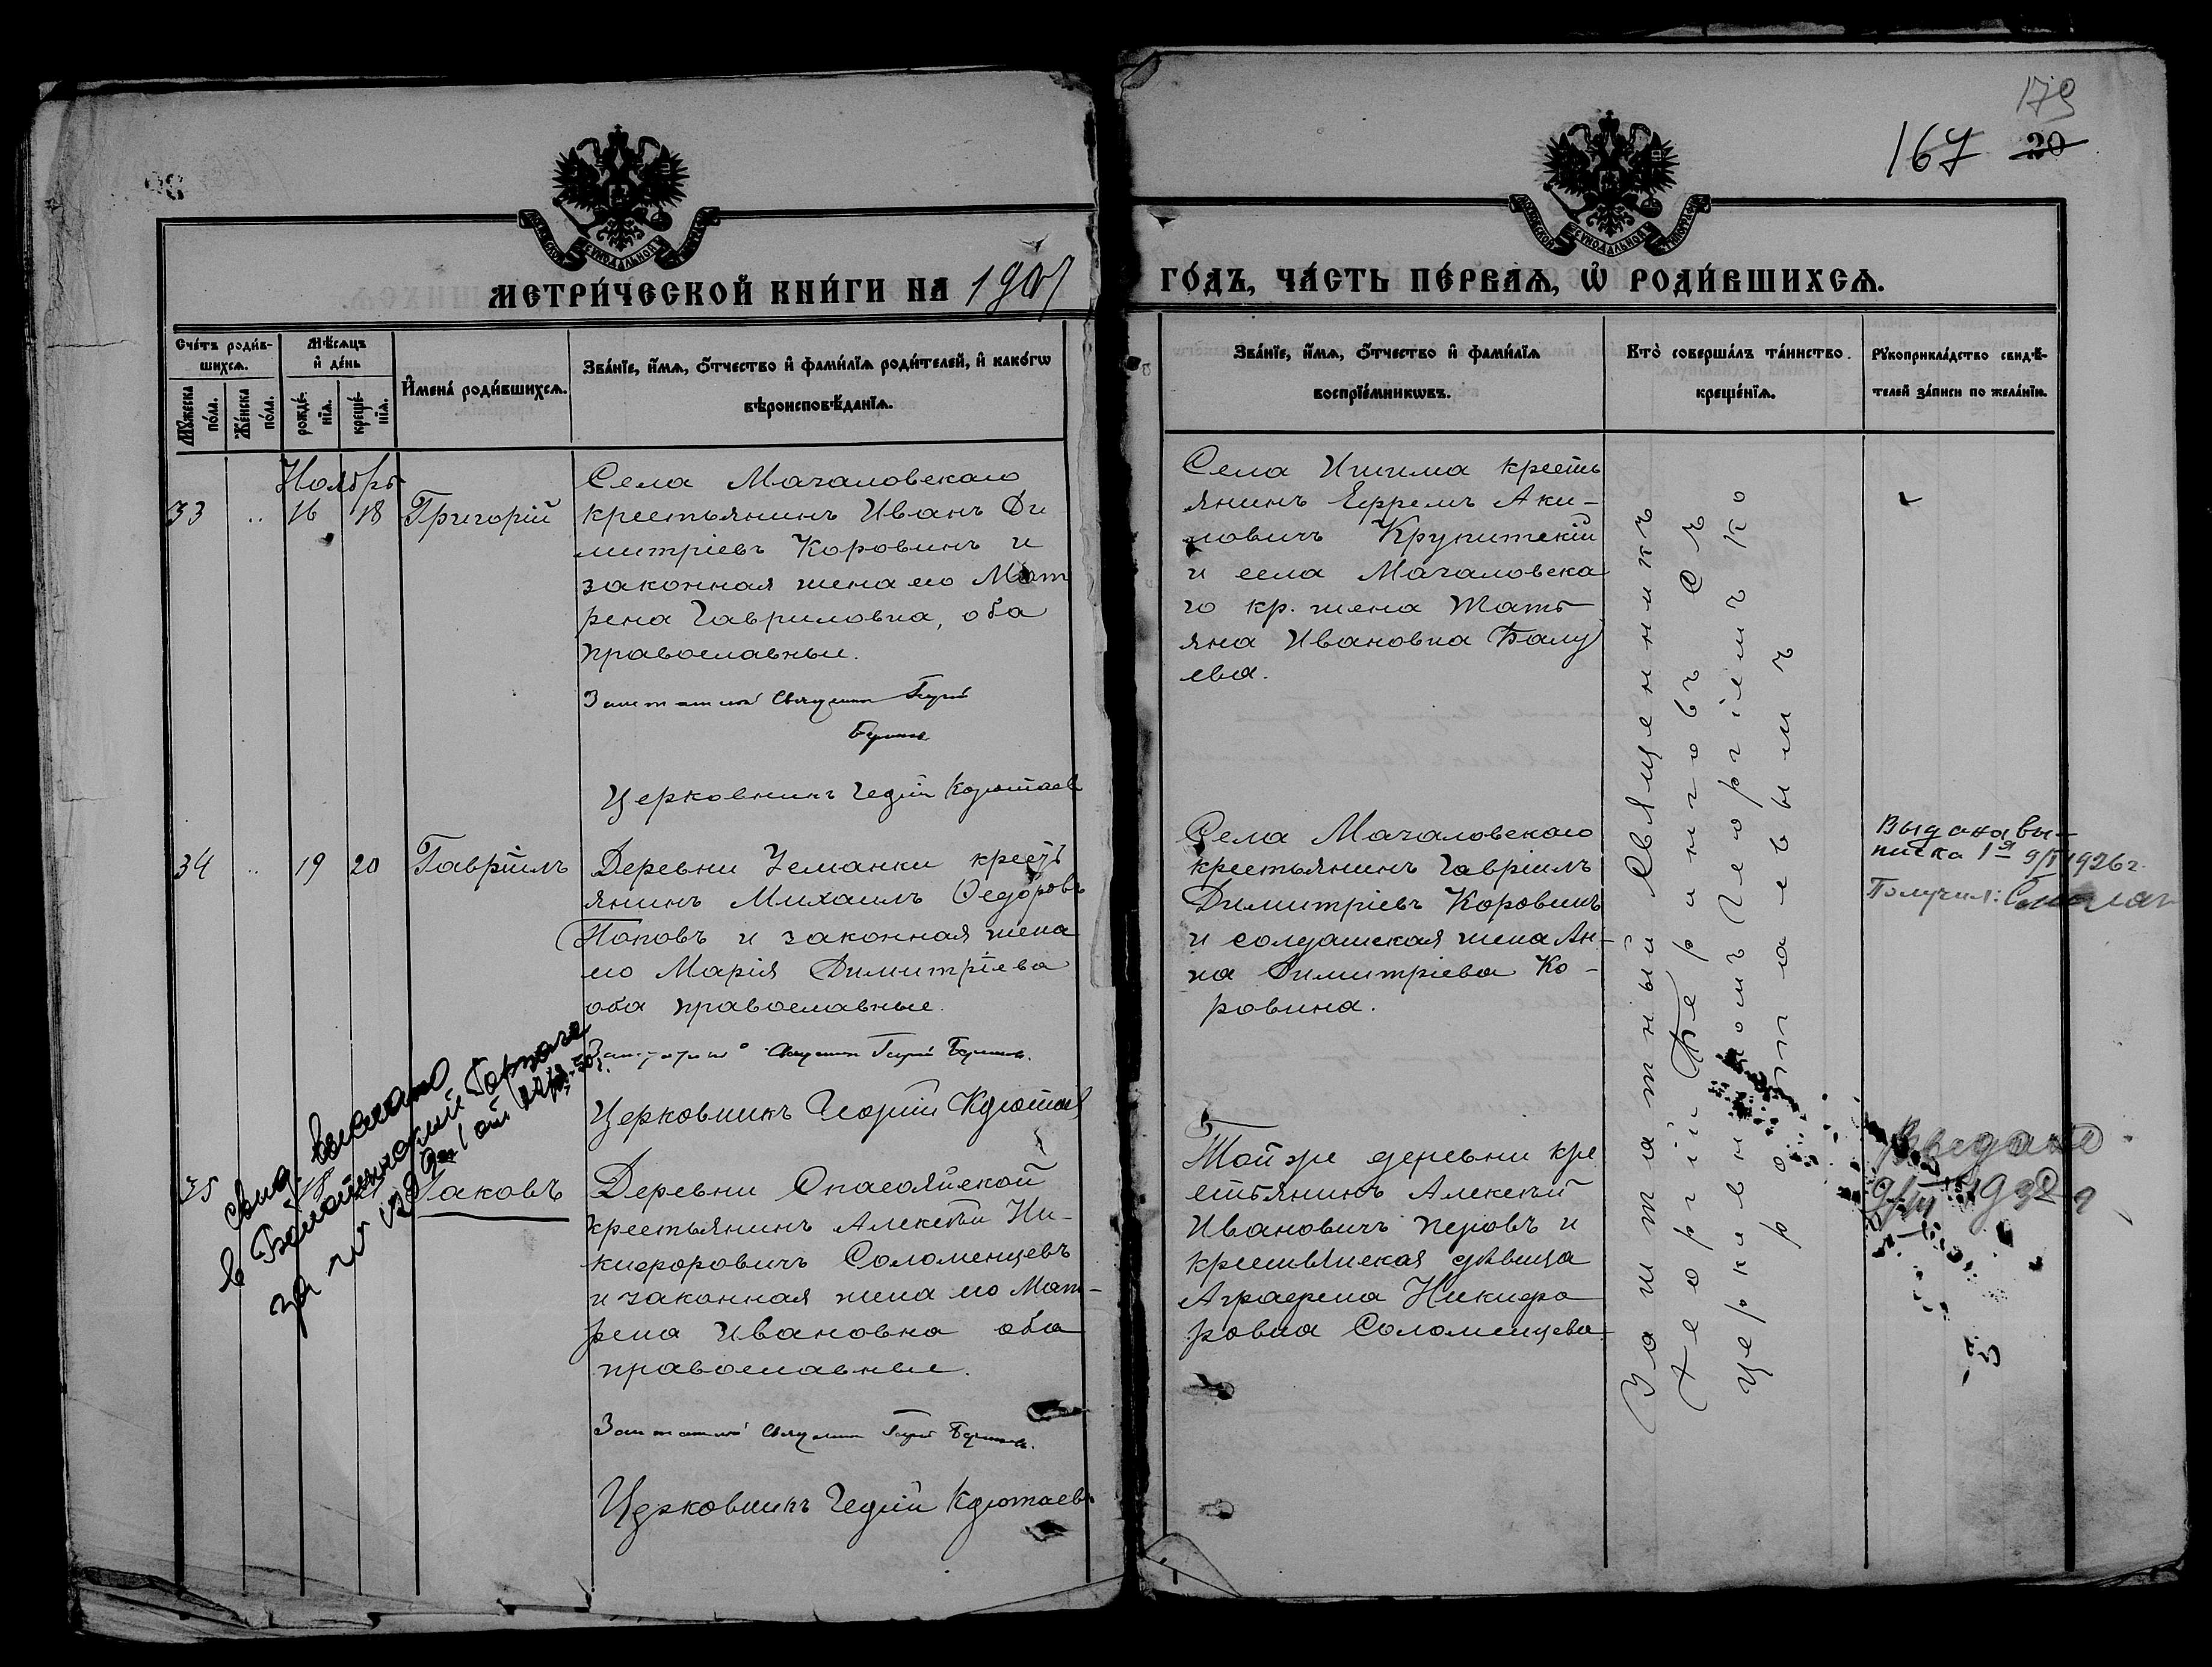 179
167 20
МЕТРИ́ЧЕСКОЙ КНИ́ГИ НА 1901
ГО́ДЪ, ЧА́СТЬ ПЕ́РВАѦ, Ѡ҆ РОДИ́ВШИХСѦ.
Сче́тъ роди́в-
шихсѧ.
Мꙋ́жеска
по́ла.
Же́нска
по́ла.
Мѣ́сѧцъ
и҆ де́нь
рожде́-
нїѧ.
креще́-
нїѧ.
И҆мена̀ роди́вшихсѧ.
Зва́нїе, и҆́мѧ, ѻ҆́тчество и҆ фами́лїѧ роди́телей, и҆ како́гѡ
вѣроисповѣ́данїѧ.
Зва́нїе, и҆́мѧ, ѻ҆́тчество и҆ фами́лїѧ
воспрїе́мникѡвъ.
Кто̀ соверша́лъ та́инство
креще́нїѧ.
Рꙋкоприкла́дство свидѣ́-
телей за́писи по жела́нїю.
Ноябрь
33 .. 16 18 Григорій
Села Мачаловскаго
крестьянинъ Иванъ Ди
митріевъ Коровинъ и
законная жена его Мат
рена Гавриловна, оба
православные.
Заштатный Священник Георгій
Церковникъ Георгій
Села Ишима кресть
янинъ Ефремъ Аки-
мовичъ Крупитскій
и села Мачаловска
го кр. жена Тать
яна Ивановна Балу
ева.
34 .. 19 20 Гавріилъ
Деревни Усманки кресть
янинъ Михаилъ Ѳедоровъ
Поповъ и законная жена
его Марія Димитріева
оба православные.
Заштатный Священник Георгій
Церковникъ Георгій
Села Мачаловскаго
крестьянинъ Гавріилъ
Димитріевъ Коровинъ
и солдатская жена Ан-
на Димитріева Ко-
ровина.
Выдана вы-
писка 1я 9/I 1926 г.
Получил:
35 Іаковъ
Деревни Спасояйской
крестьянинъ Алексѣй Ни-
кифоровичъ Соломенцевъ
и законная жена его Мат-
рена Ивановна оба
православные.
Заштатный Священник Георгій
Церковникъ Георгій
Той же деревни кре
стьянинъ Алексѣй
Ивановичъ Перовъ и
крестьянская дѣвица
Аграфена Никифо
ровна Соломенцева
Свид. выслано
в
за №
Выдано
Заштатный Священникъ
Георгій Съ
Церковникомъ Георгіемъ Ко